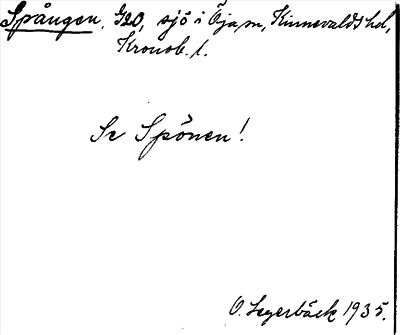 Spången, G20, sjö i Öja sn, Kinnevalds hd,
Kronob. l.
Se Spönen!
O. Segerbäck 1935.